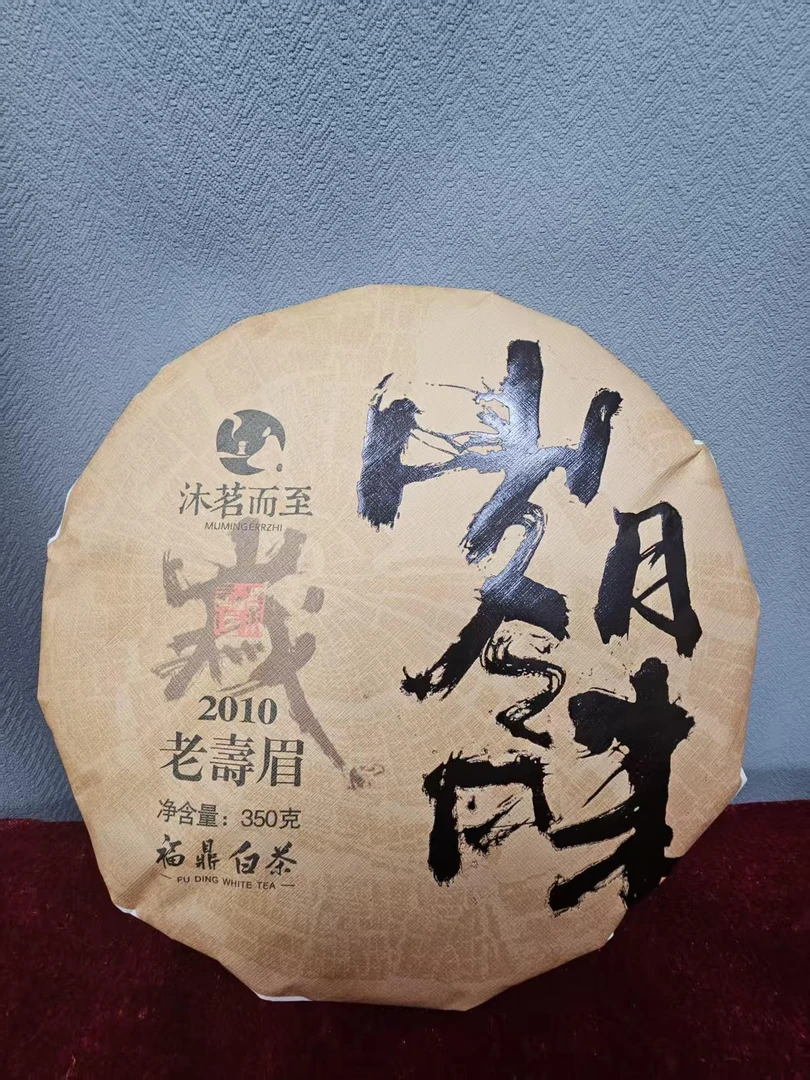 岁月味
沐茗而至
MUMINGERRZHI
2010
老壽眉
净含量：350克
福鼎白茶
FU DING WHITE TEA